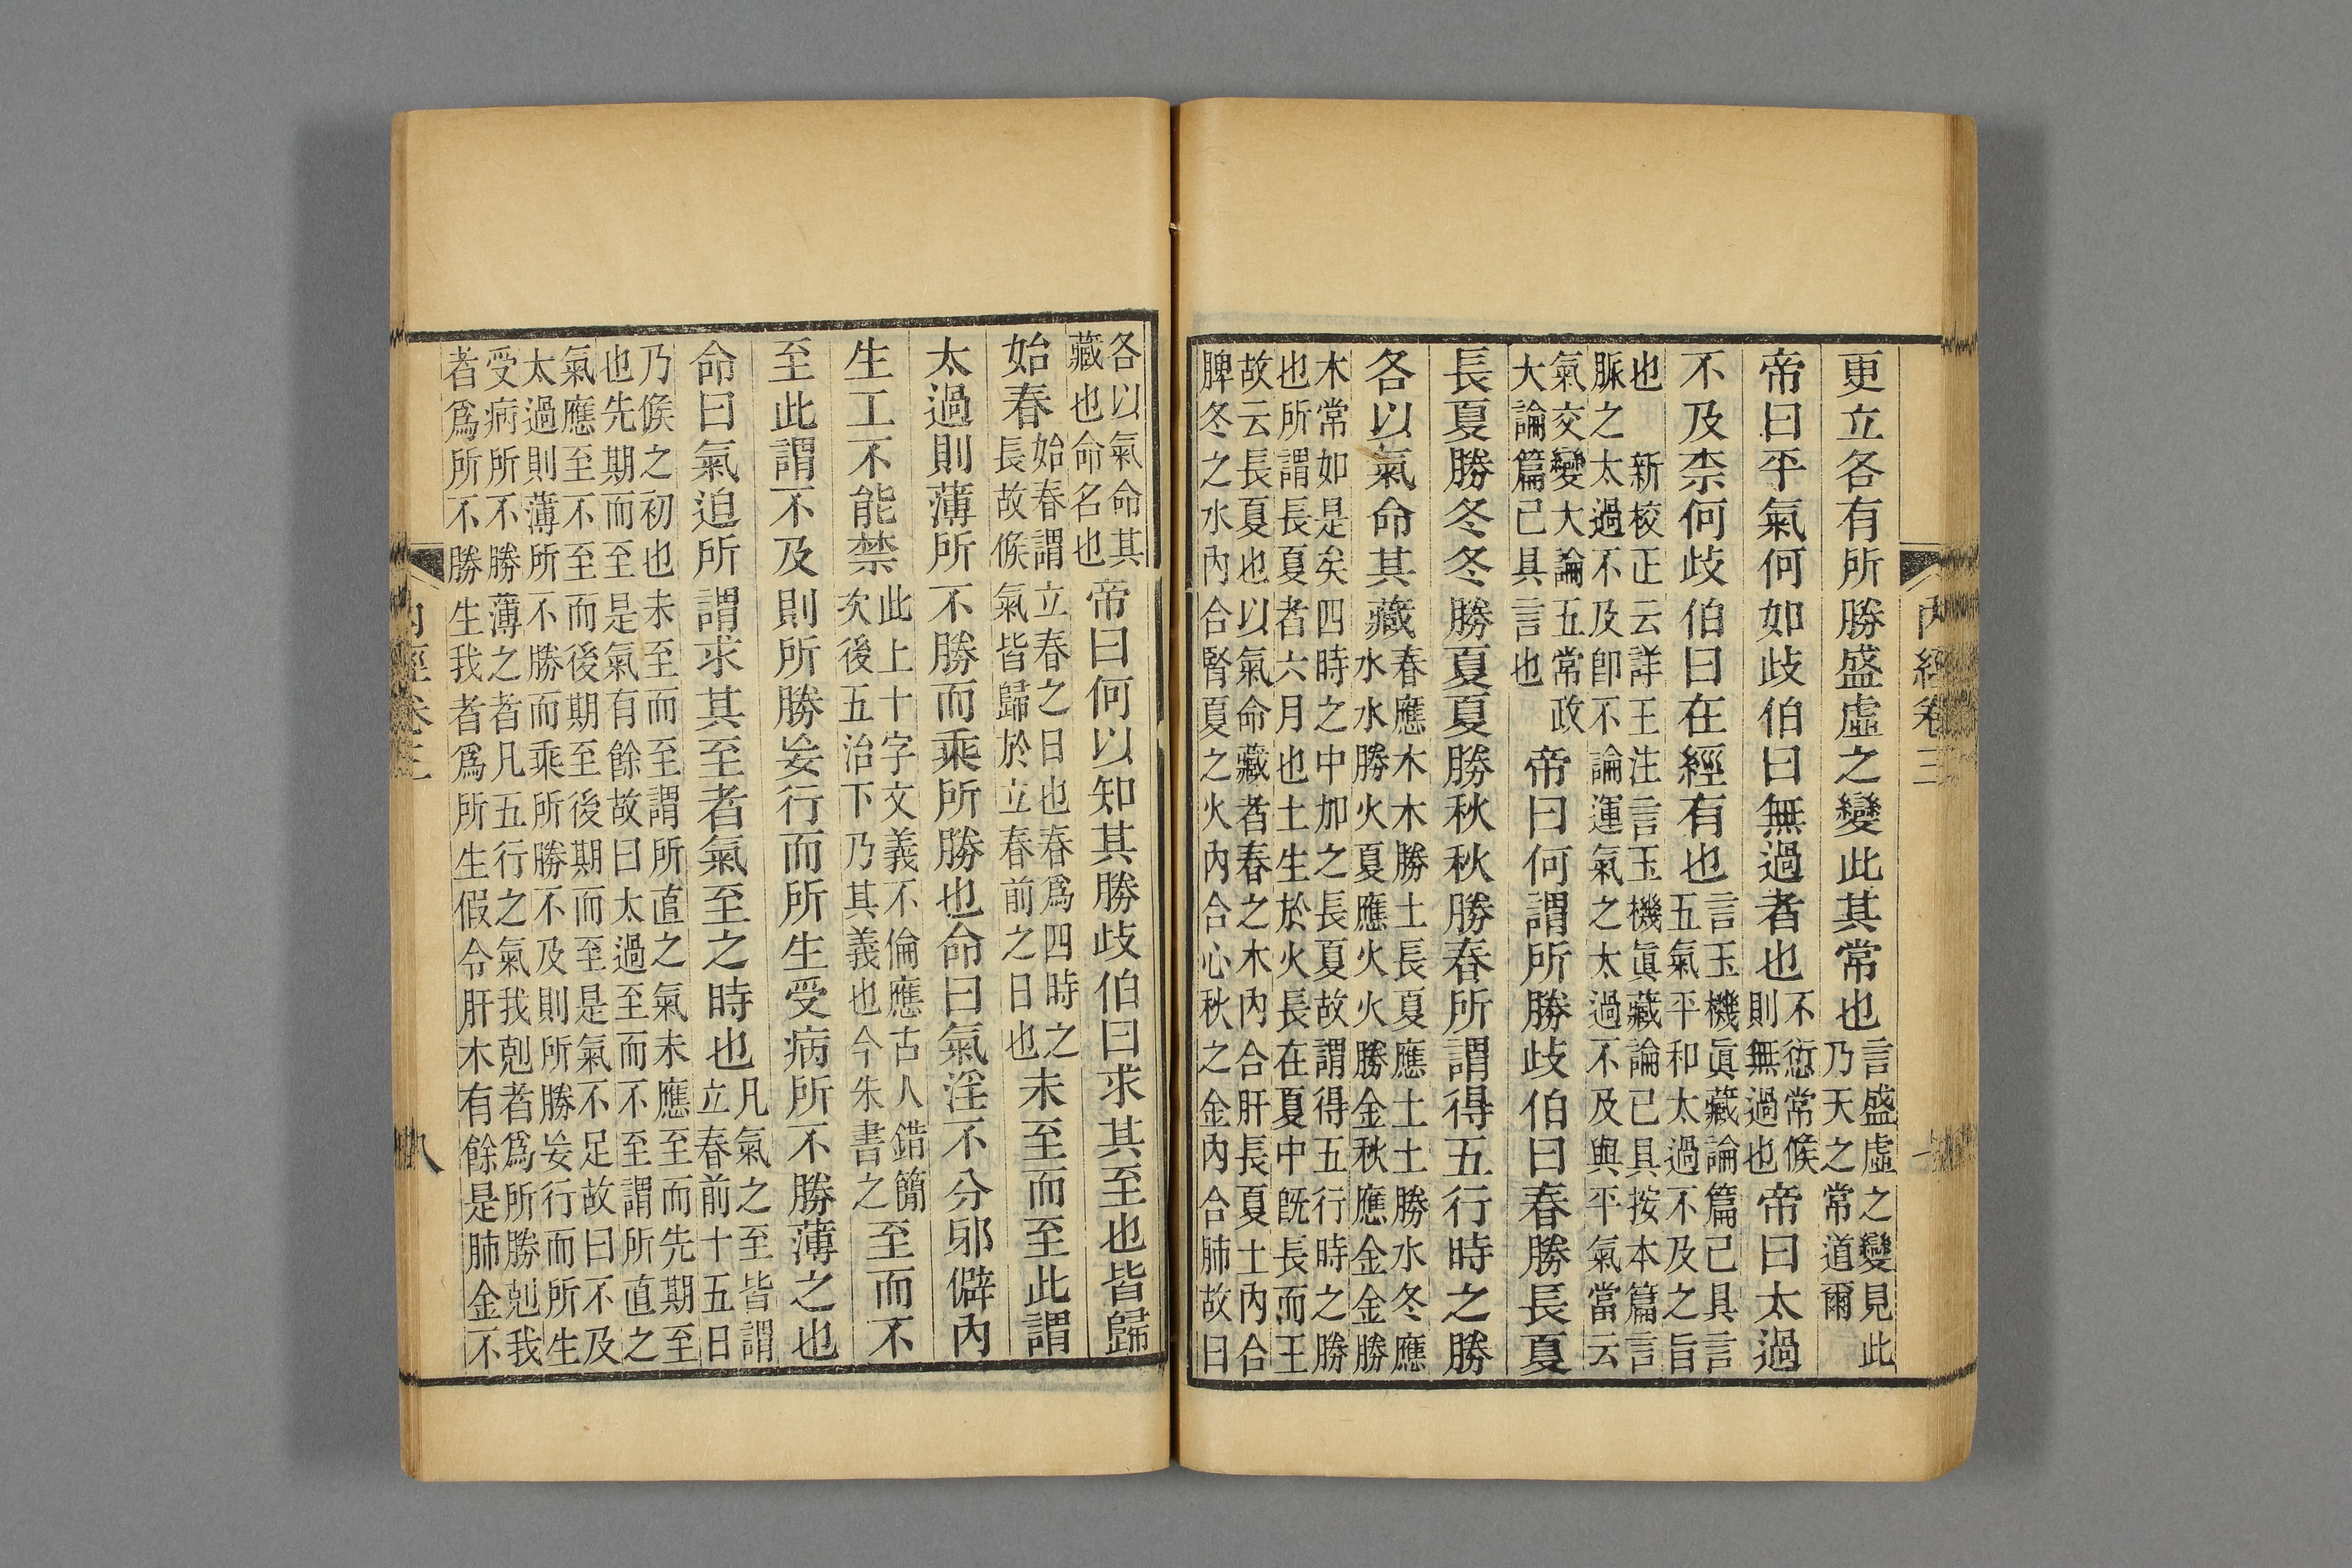 內經卷三
更立各有所勝盛虛之變此其常也
言盛虛之變見此
乃天之常道爾
帝曰平氣何如歧伯曰無過者也
不愆常候
則無過也
帝曰太過
不及柰何歧伯曰在經有也
言玉機眞藏論篇已具言
五氣平和太過不及之旨
也 新校正云詳王注言玉機眞藏論已具按本篇言
脈之太過不及卽不論運氣之太過不及與平氣當云
氣交變大論五常政
大論篇已具言也
帝曰何謂所勝歧伯曰春勝長夏
長夏勝冬冬勝夏夏勝秋秋勝春所謂得五行時之勝
各以氣命其藏
春應木木勝土長夏應土土勝水冬應
水水勝火夏應火火勝金秋應金金勝
木常如是矣四時之中加之長夏故謂得五行時之勝
也所謂長夏者六月也土生於火長在夏中旣長而王
故云長夏也以氣命藏者春之木內合肝長夏土內合
脾冬之水內合腎夏之火內合心秋之金內合肺故曰
各以氣命其
藏也命名也
帝曰何以知其勝歧伯曰求其至也皆歸
始春
始春謂立春之日也春爲四時之
長故候氣皆歸於立春前之日也
未至而至此謂
太過則薄所不勝而乘所勝也命曰氣淫不分邪僻內
生工不能禁
此上十字文義不倫應古人錯簡
次後五治下乃其義也今朱書之
至而不
至此謂不及則所勝妄行而所生受病所不勝薄之也
命曰氣迫所謂求其至者氣至之時也
凡氣之至皆謂
立春前十五日
乃候之初也未至而至謂所直之氣未應至而先期至
也先期而至是氣有餘故曰太過至而不至謂所直之
氣應至不至而後期至後期而至是氣不足故曰不及
太過則薄所不勝而乘所勝不及則所勝妄行而所生
受病所不勝薄之者凡五行之氣我剋者爲所勝剋我
者爲所不勝生我者爲所生假令肝木有餘是肺金不
內經卷三 八